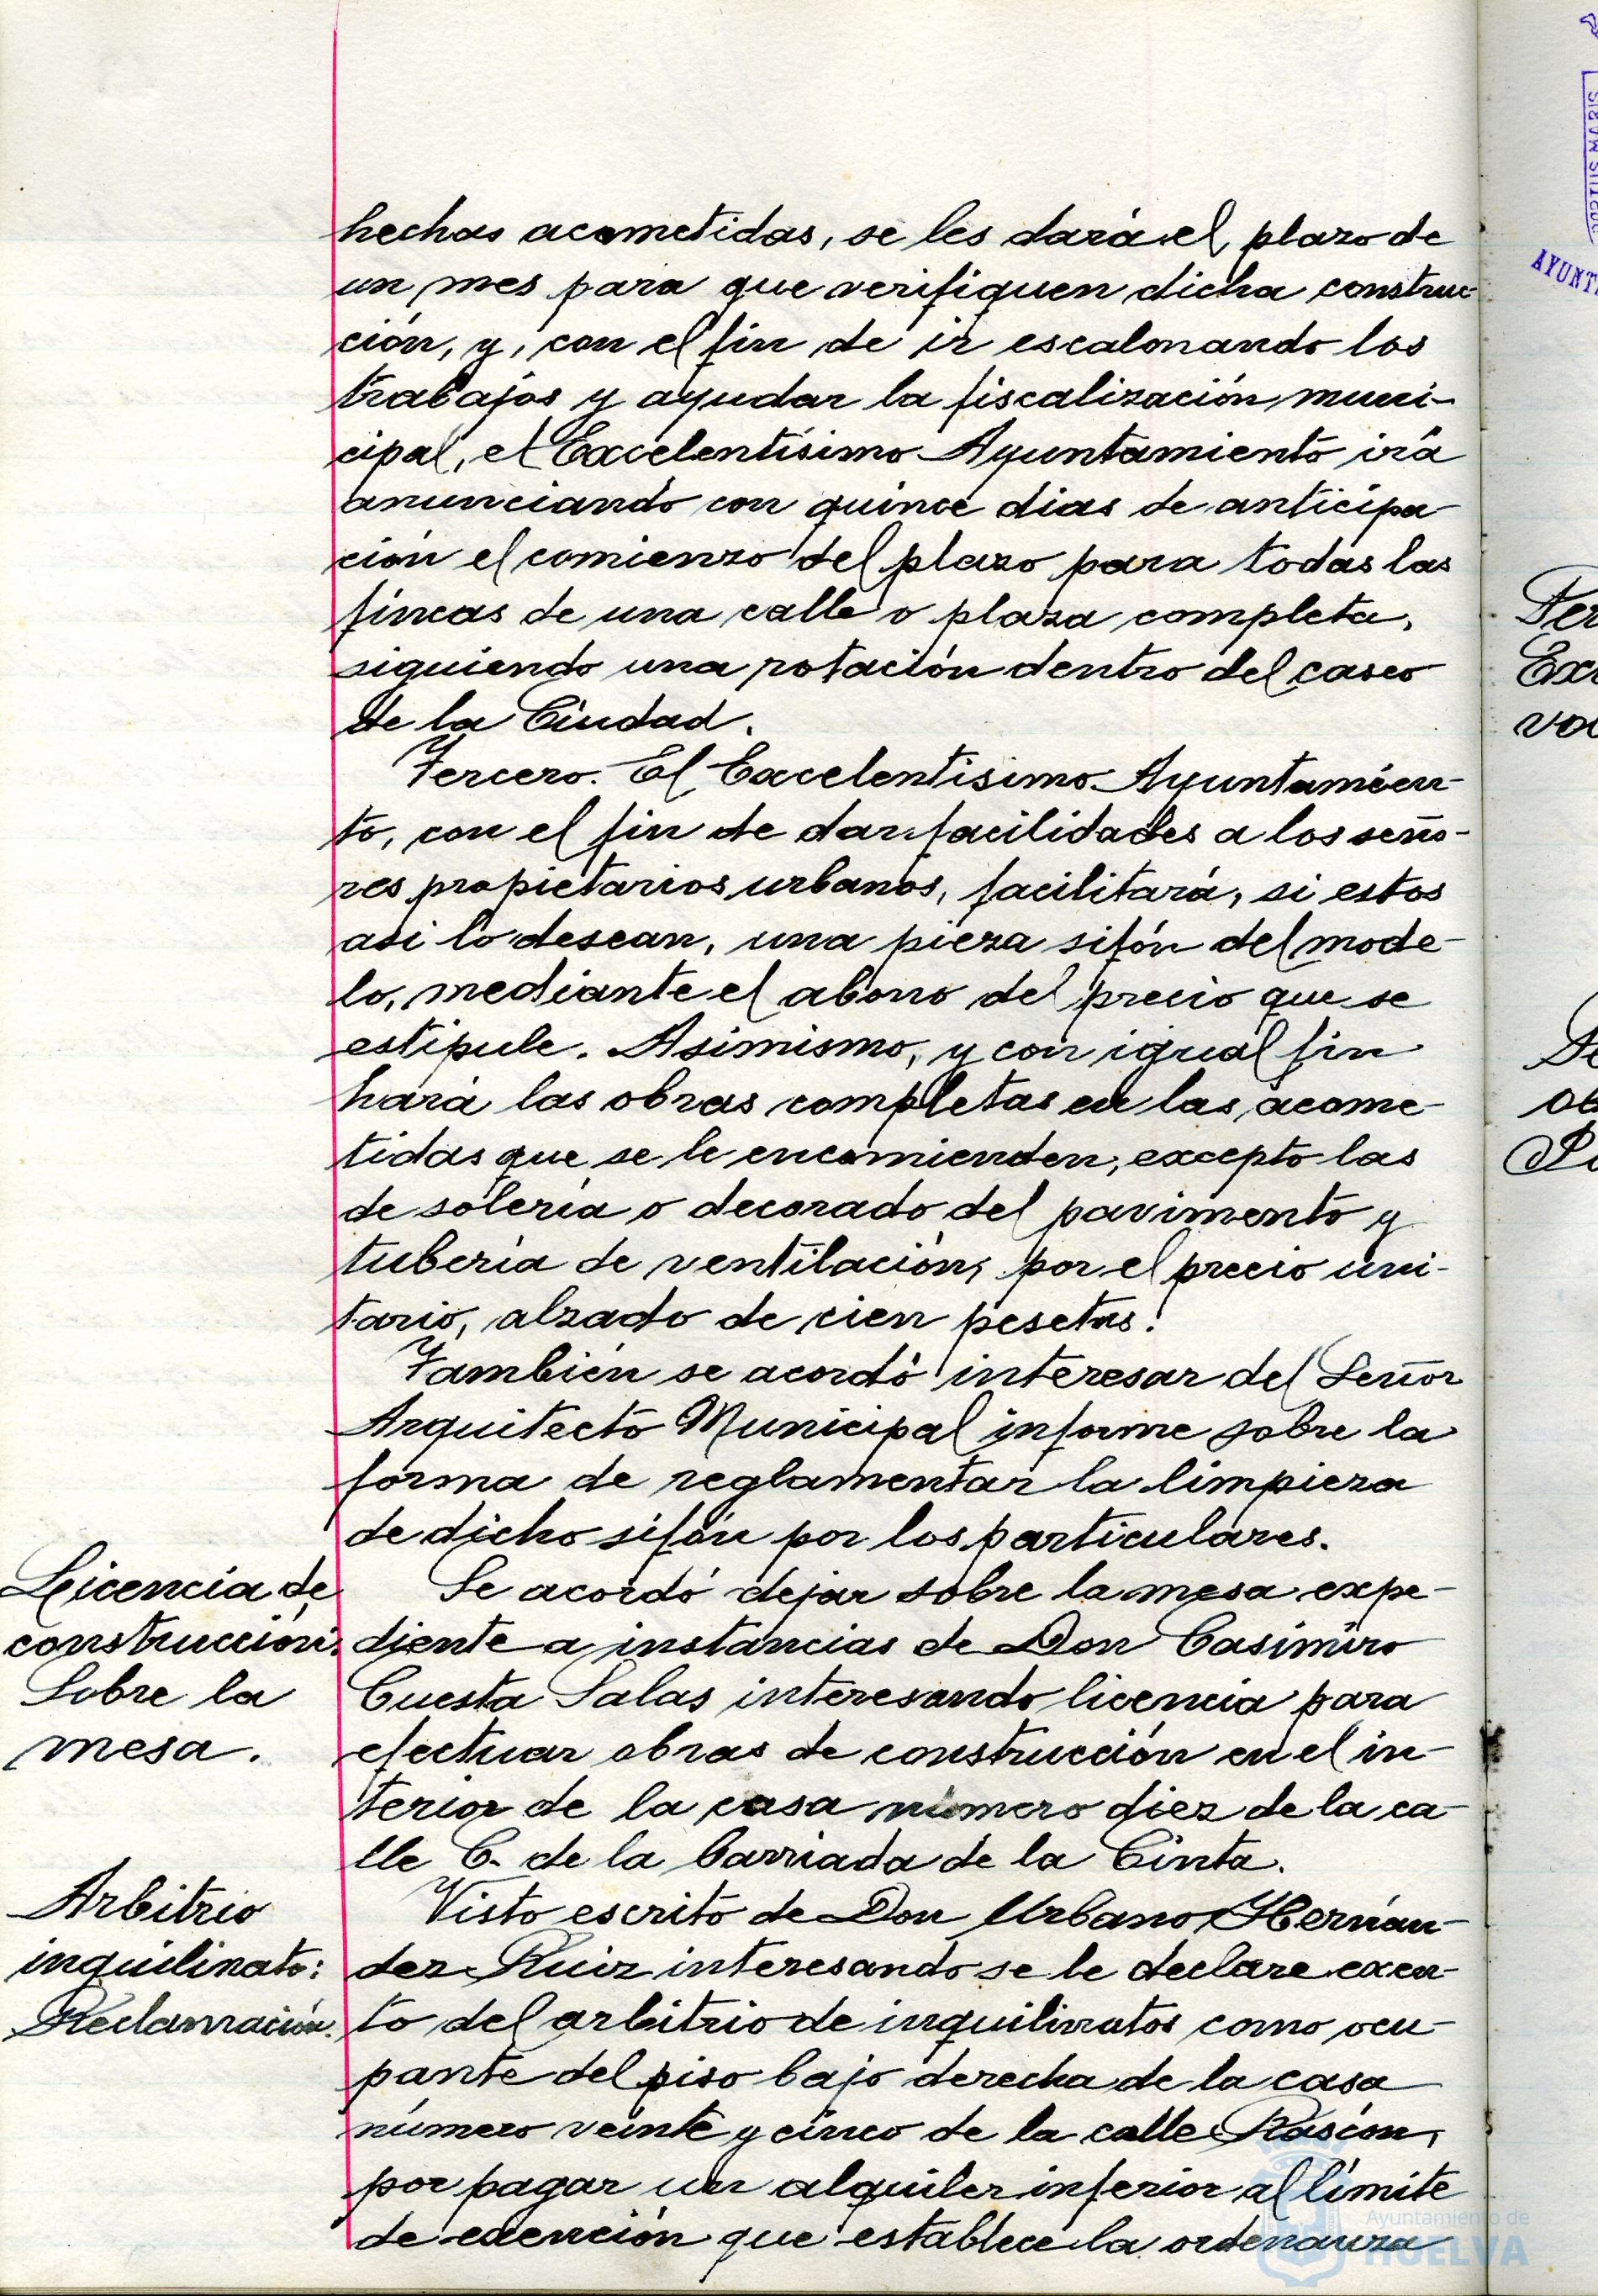 hechas acometidas, se les dará el plazo de
un mes para que verifiquen dicha construc-
ción, y, con el fin de ir escalonando los
trabajos y ayudar la fiscalización muni-
cipal, el Excelentísimo Ayuntamiento irá
anunciando con quince dias de anticipa-
ción el comienzo del plazo para todas las
fincas de una calle o plaza completa,
siguiendo una rotación dentro del casco
de la Ciudad.
Tercero. El Excelentísimo Ayuntamien-
to, con el fin de dar facilidades a los seño-
res propietarios urbanos, facilitará, si estos
asi lo desean, una pieza sifón del mode-
lo, mediante el abono del precio que se
estipule. Asimismo, y con igual fin
hará las obras completas en las acome-
tidas que se le encomienden, excepto las
de solería o decorado del pavimento y
tubería de ventilación, por el precio uni-
tario, alzado de cien pesetas.
También se acordó interesar del Señor
Arquitecto Municipal informe sobre la
forma de reglamentar la limpieza
de dicho sifón por los particulares.
Licencia de
construcción.
Sobre la
mesa.
Se acordó dejar sobre la mesa expe-
diente a instancias de Don Casimiro
Cuesta Salas interesando licencia para
efectuar obras de construcción en el in-
terior de la casa número diez de la ca-
lle C. de la barriada de la Cinta.
Arbitrio
inquilinato:
Reclamación.
Visto escrito de Don Urbano Hernán-
dez Ruiz interesando se le declare exen-
to del arbitrio de inquilinatos como ocu-
pante del piso bajo derecha de la casa
número veinte y cinco de la calle Rascón,
por pagar un alquiler inferior al límite
de exención que establece la ordenanza
Ayuntamiento de
HUELVA
PORTUS MARIS
AYUNT
Exc